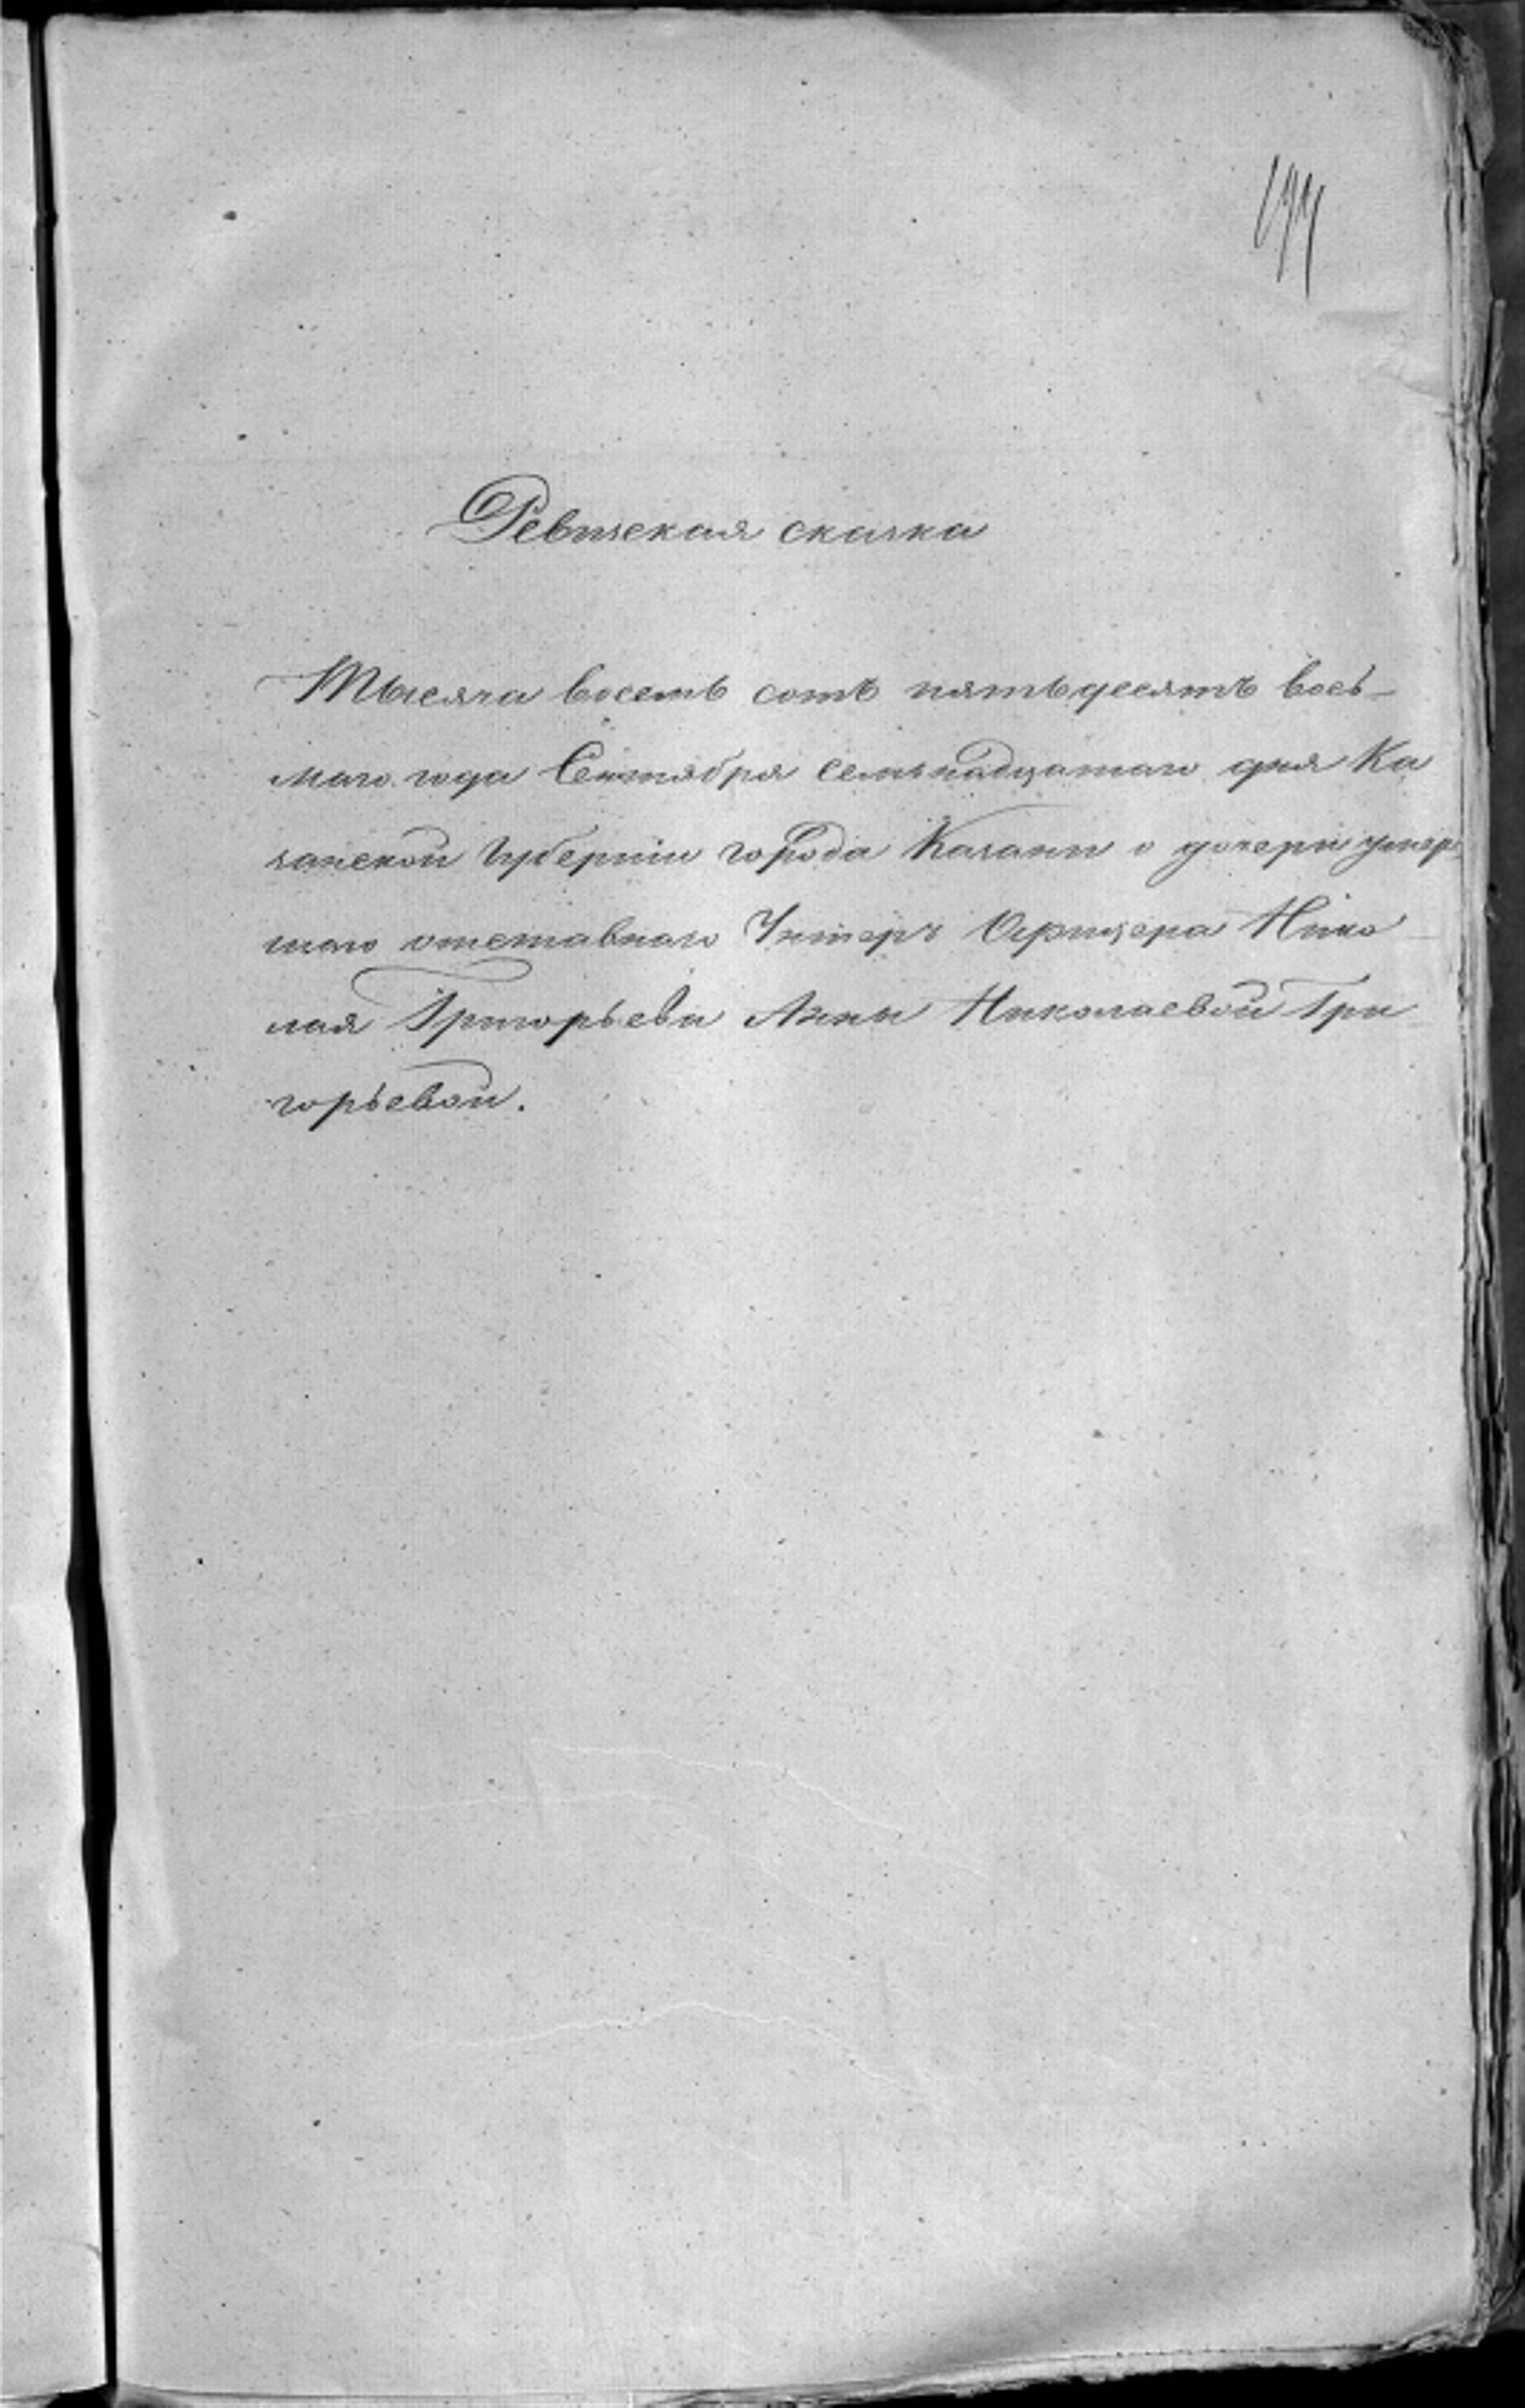 Ревизская сказка
Тысяча восемь сотъ пятьдесятъ вось-
маго года Сентября семьнадцатаго дня Ка
занской Губерніи города Казани о дочери умер
шаго отставнаго Унтеръ Офицера Нико
лая Григорьева Анны Николаевой Гри
горьевой.